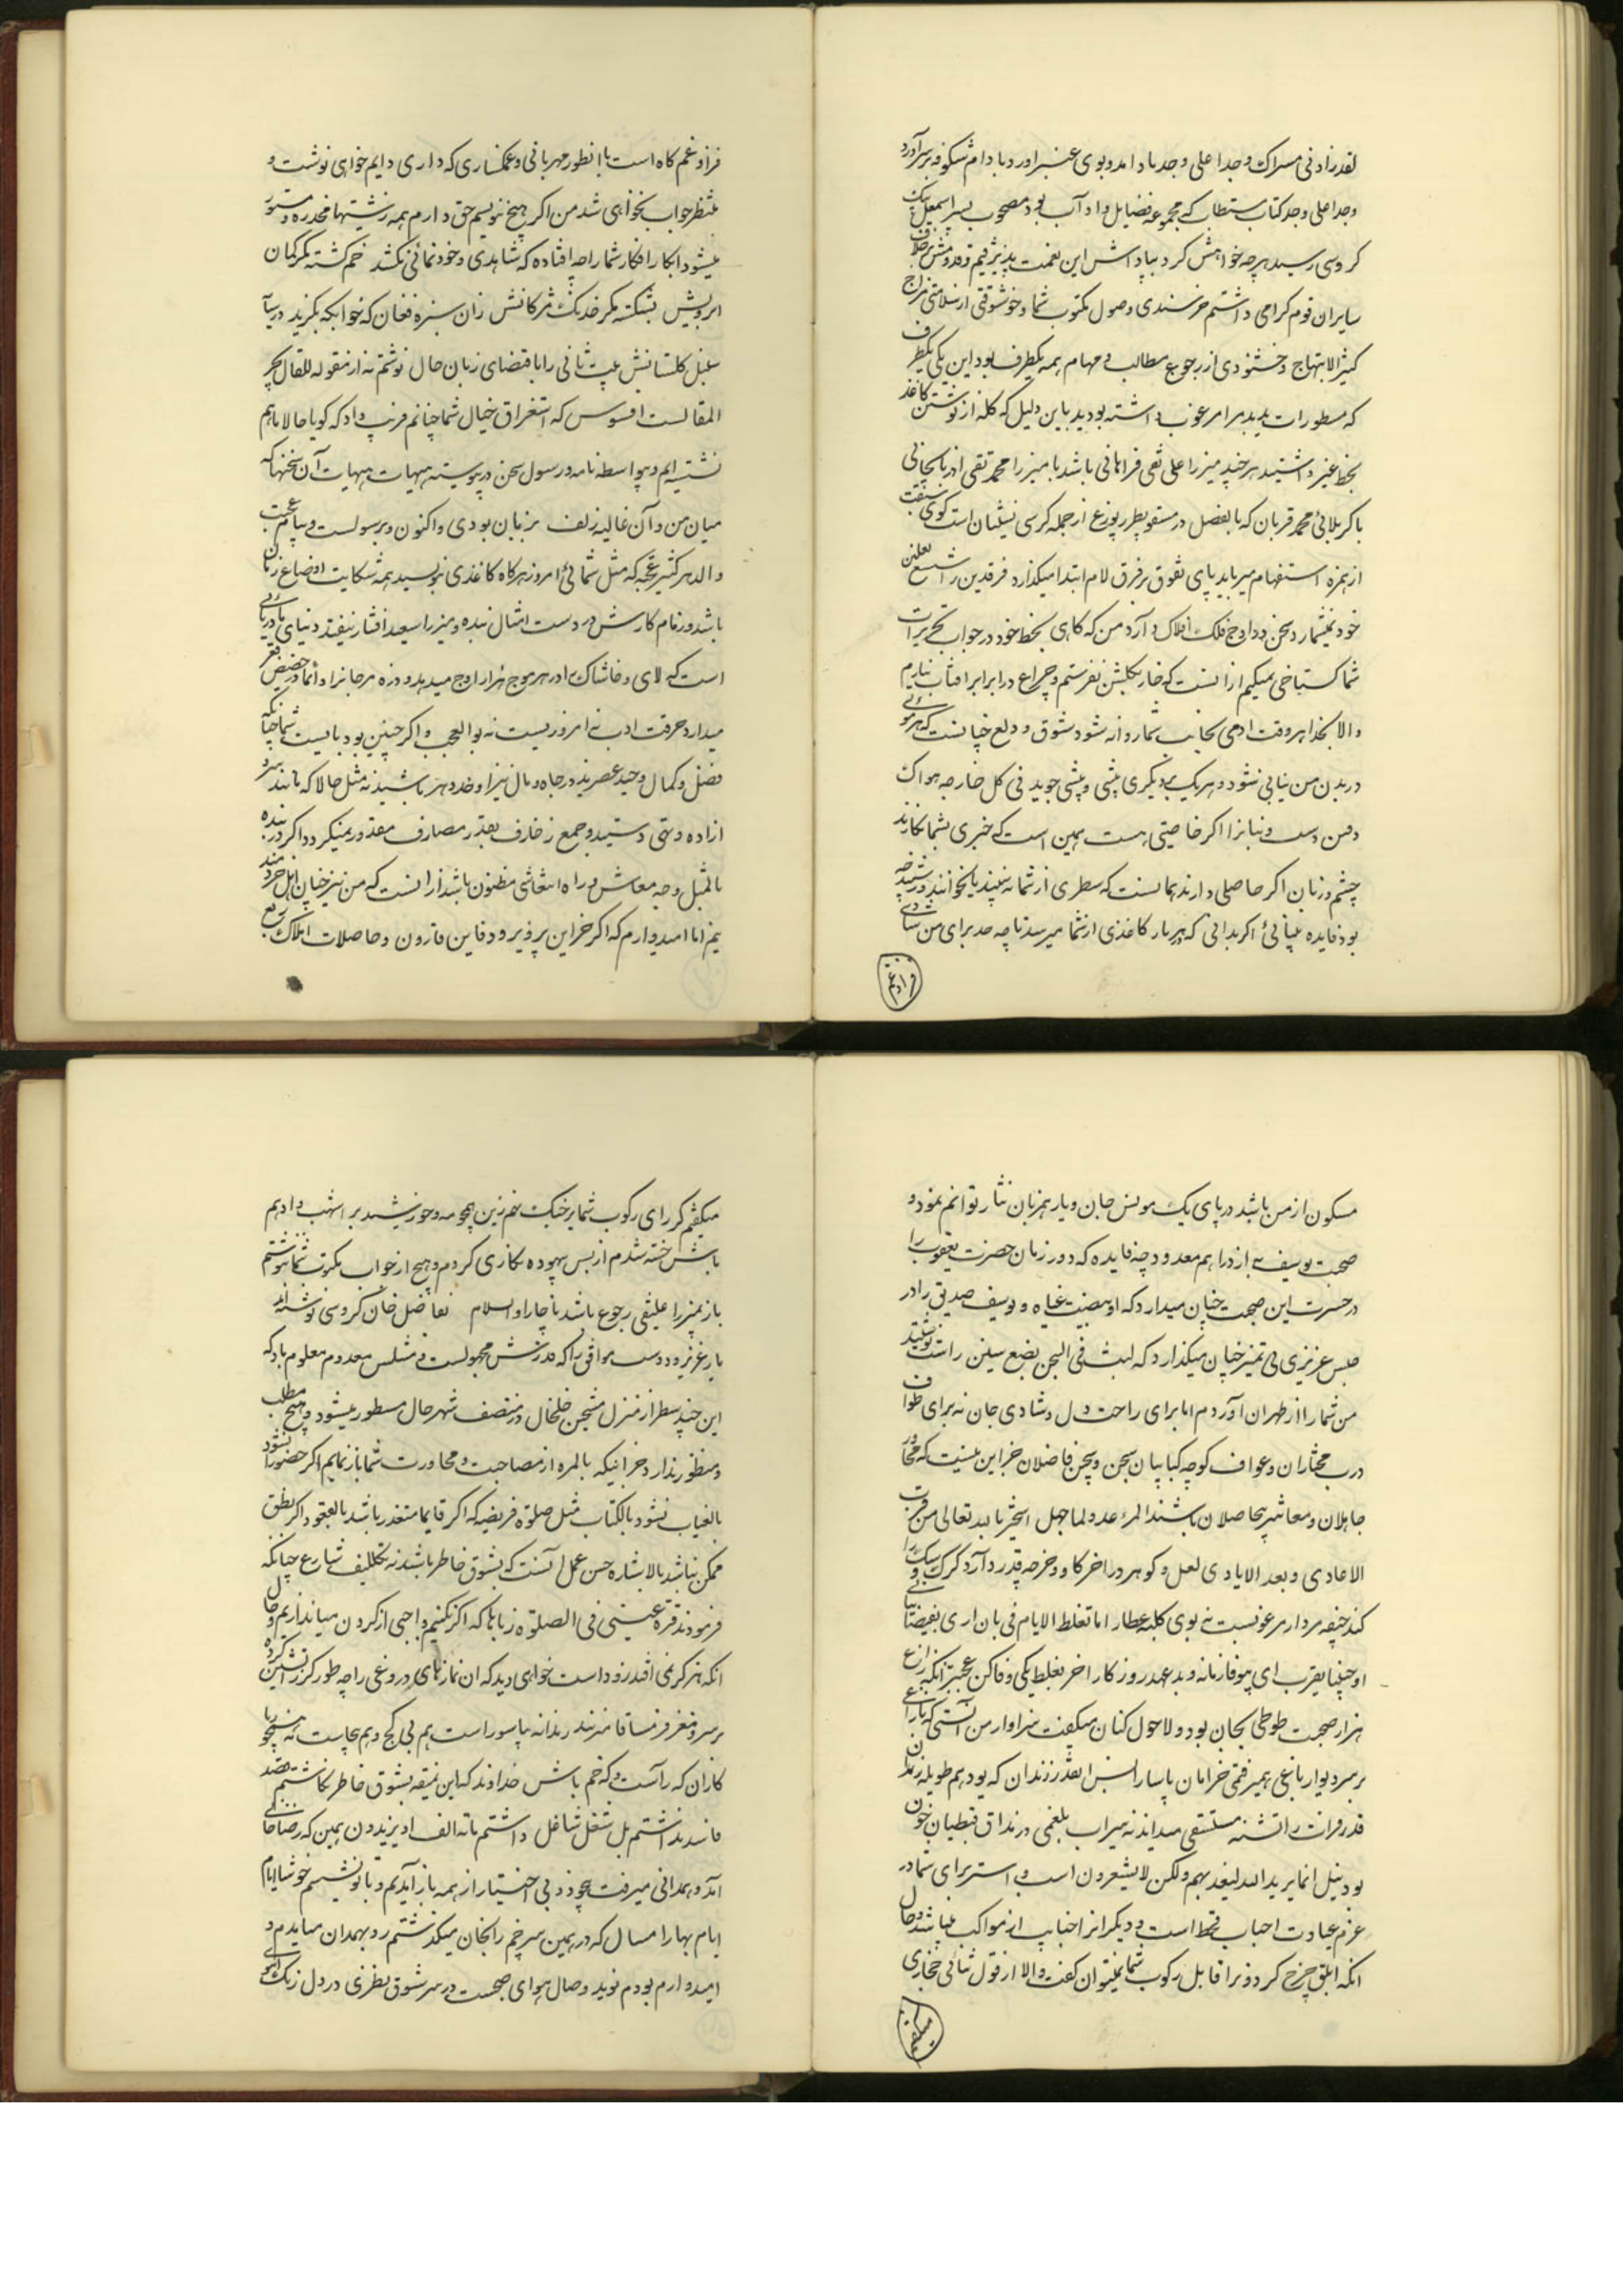 لقد زادنی مسراک وجدا علی وجد باد امد و بوی عنبر اورد بادام شکوفه بر سر آورد
وجدا علی وجد کتاب مستطاب که مجموعه فضایل و اداب بود مصحوب پسر اسمعیل بیک
کروسی رسید هر چه خواهش کرد بپاداش این نعمت پذیرفتیم و قدومش بر خلاف
سایران قوم گرامی داشتم خرسندی وصول مکتوب شما و خوشوقتی از سلامتی مزاج
کثیر الابتهاج و خشنودی از رجوع مطالب و مهام همه یکطرف بود این یکی یکطرف
که مسطورات بدید مرا مرعوب داشته بودید باین دلیل که گله از نوشتن کاغذ
بخط غیر داشتید هر چند میرزا علی نقی فراهانی باشد یا میرزا محمد تقی اذربایجانی
یا کربلائی محمد قربان که بالفعل در مسقو پطرپورغ از جمله کرسی نشینان است گوی سبقت
از همزه استفهام میرباید پای تفوق بر فرق لام ابتدا میگذارد فرقدین را شسع نعلین
خود نمیشمارد سخن در اوج فلک افلاک دارد من که گاهی بخط خود در جواب تحریرات
شما گستاخی نمیکنم از انست که خار بگلبن نفرستم و چراغ در برابر افتاب نیارم
والا بخدا هر وقت ادمی بجانب شما روانه شود شوق و ولع چنانست که هر موئی
در بدن من بنانی شود و هر یک بر دیگری پیشی و بیشی جوید فی کل جارحه هواک
دفین دست و بنانرا اگر خاصیتی هست همین است که خبری بشما نگارند
چشم و زبان اگر حاصلی دارند همانست که سطری از شما نه بینند یا نخوانند ورنه چه
بود فایده بینائی را اگر بدانی که هر بار کاغذی از شما میرسد تا چه حد برای من شادی
فزاو غم
فزا و غم کاه است با انطور مهربانی و غمگساری که داری دایم خواهی نوشت و
منتظر جواب نخواهی شد من اگر هیچ ننویسم حق دارم همه زشتیها مخدره و مستور
میشود ابکار افکار شما را چه افتاده که شاهدی و خودنمائی نکشد خم گشته مگر کمان
ابرویش بشکسته مگر خدنگ مژگانش زان سبزه فغان که خوابگه بگزید در سایه
سنبل گلستانش بیت ثانی را باقتضای زبان حال نوشتم نه از مقوله للقال یجر
المقالست افسوس که استغراق خیال شما چنانم فریب داد که گویا حالا باهم
نشسته ایم و بیواسطه نامه و رسول سخن در پیوسته هیهات هیهات آن سخنها که
میان من و آن غالیه زلف بزبان بودی و اکنون برسولست و پیام عجبت
والدهر کثیر عجبه که مثل شمائی امروز هر گاه کاغذی بنویسید همه شکایت اوضاع زمان
باشد و زمام کارش در دست امثال بنده و میرزا سعید افشار بیفتد دنیای دنی دریائی
است که لای و خاشاک را در هر موج هزار اوج میدهد و دره مرجانرا دائما در حضیض قعر
میدارد حرفت ادب نه امروزیست نه بوالعجب و اگر چنین بود بایست شما چنانکه
فضل و کمال وحید عصرید در جاه و مال نیز اوحد دهر باشید نه مثل حالا که مانند سرو
ازاده و تهی دستید و جمع زخارف بقدر مصارف مقدور نمیگردد اگر در بنده
بالمثل وجه معاش و راه انتعاشی مظنون باشد ازانست که من نیز چنان اهل خرد مند
نیم اما امیدوارم که اگر خزاین پرویز و دفاین قارون و حاصلات املاک ربع
مسکون از من باشد در پای یک مونس جان و یار همزبان نثار توانم نمود و
صحبت یوسف به از دراهم معدود چه فایده که دور زمان حضرت یعقوب را
در حسرت این صحبت چنان میدارد که ابیضت عیناه و یوسف صدیق را در
حبس عزیزی بی تمیز چنان میگذارد که لبث فی السجن بضع سنین راست نوشتید
من شما را از طهران آوردم اما برای راحت دل و شادی جان نه برای طواف
درب مختاران و عواف کوچه کبابیان سجن و سجن فاضلان جز این نیست که مجاور
جاهلان و معاشر بیحاصلان باشند المرء عدو لما جهل استجیر بالله تعالی من قرب
الاعادی و بعد الایادی لعل و گوهر در اخر گاو و خر چه قدر دارد گرگ و سگ را
کند جیفه مردار مرغوبست نه بوی کلبه عطار اما تغلط الایام فی بان اری بغیضا تنائی
او حبیبا یقرب ای بیوفا زمانه و بد عهد روزگار اخر بغلط یکی وفا کن عجبتر انکه زاغ
هزار صحبت طوطی بجان بود و لاحول کنان میگفت سزاوار من انستی که با زاغی
بر سر دیوار باغی همیرفتمی خرامان پارسا را بس اینقدر زندان که بود هم طویله رندان
قدر فرات را تشنه مستسقی میداند نه سیراب بلغمی در مذاق قبطیان خون
بود نیل انما یرید الله لیعذبهم ولکن لایشعرون است و استر برای شما در
عزم عیادت احباب قحط است و دیگر انرا جنایب از مواکب میباشد و حال
انکه ابلق چرخ گردون را قابل رکوب شما نمیتوان گفت و الا از قول ثنائی حجازی
میگفتم
میگفتم کر رای رکوب شما بر خنگ نهم زین بجو مه و خورشید بر اشهب و ادهم
باش خسته شدم از بس بیهوده نگاری کردم و هیچ از جواب مکتوب شما ننوشتم
باز بمیرزا علینقی رجوع باشد ناچار والسلام بفاضل خان کروسی نوشته اند
یار عزیز و دوست موافق را که قدرش مجهولست و مثلش معدوم معلوم باد که
این چند سطر از منزل مشجن خلخال در منتصف شهر حال مسطور میشود و هیچ مطلب
و منظور ندارد جز اینکه بالمره از مصاحبت و محاورت شما باز نمانم اگر حضورا نشود
بالغیاب نشود بالکتاب مثل صلوة فریضه که اگر قایما متعذر باشد بالقعود اگر بنطق
ممکن نباشد بالاشاره حسن عمل آنست که بشوق خاطر باشد نه بتکلیف شارع چنانکه
فرمودند قرة عینی فی الصلوة نه زباها که اگر نکنیم واجبی از گردن میاندازیم و حال
انکه هنر گر نمی افتد زود است خواهی دید که ان نمازهای دروغی را چه طور گرز اتشین کرده
بر سر و مغز فرمساقا میزنند رندانه پاسور است هم بی کج و هم بجاست نه چو ریا
کاران که راست و که خم باش خداوند که این نمیقه بشوق خاطر نگاشتم قصد
فاسد نداشتم بل شغل شاغل داشتم مائه الف او یزیدون همین که رضا خان
آمد و همدانی میرفت عجود و بی اختیار از همه باز آمدیم و با تو نشستیم خوشا ایام
ایام بهار امسال که در همین سر خم رانجان میگذشتم رو بهمدان میامدم و
امیدوارم بودم نوید وصال هوای صحبت در سر شوق بطرزی در دل زنگ آهوی